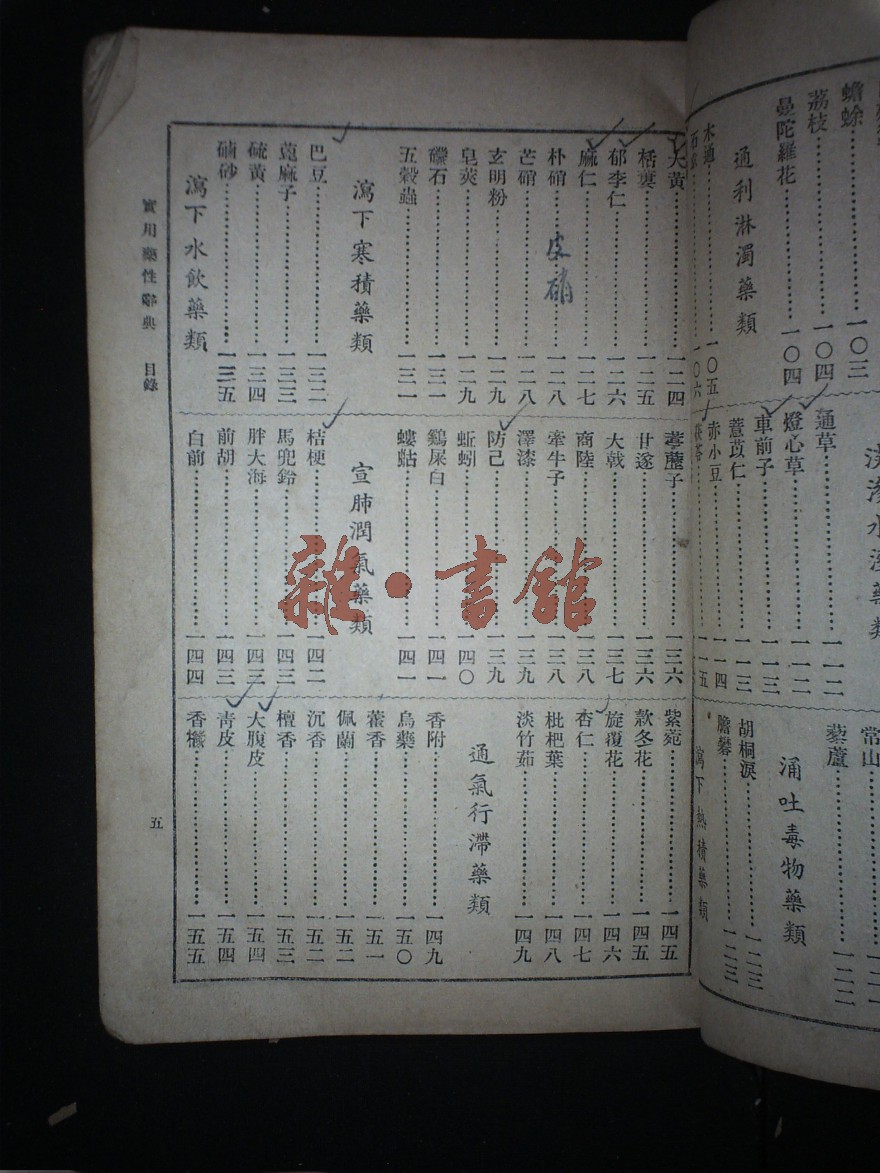 蟾蜍……一〇三
荔枝……一〇四
曼陀羅花……一〇四
通利淋濁藥類
木通……一〇五
一〇六
滲水溼藥類
通草……一一二
燈心草……一一二
車前子……一一三
薏苡仁……一一四
赤小豆……一一五
常山……
藜蘆……一二二
涌吐毒物藥類
胡桐淚……一二三
膽礬……一二三
瀉下熱積藥類
大黃……一二四
栝蔞……一二五
郁李仁……一二六
麻仁……一二七
朴硝……一二八
皮硝
芒硝……一二八
玄明粉……一二九
皂莢……一二九
礞石……一三一
五穀蟲……一三一
瀉下寒積藥類
巴豆……一三二
蓖麻子……一三三
硫黃……一三四
硇砂……一三五
瀉下水飲藥類
葶藶子……一三六
甘遂……一三六
大戟……一三七
商陸……一三八
牽牛子……一三八
澤漆……一三九
防己……一三九
蚯蚓……一四〇
鷄屎白……一四一
螻蛄……一四一
宣肺潤氣藥類
桔梗……一四二
馬兜鈴……一四三
胖大海……一四三
前胡……一四三
白前……一四四
紫菀……一四五
款冬花……一四五
旋覆花……一四六
杏仁……一四七
枇杷葉……一四八
淡竹茹……一四九
通氣行滯藥類
香附……一四九
烏藥……一五〇
藿香……一五一
佩蘭……一五二
沉香……一五二
檀香……一五三
大腹皮……一五四
靑皮……一五四
香櫞……一五五
實用藥性辭典 目錄
五
雜·書館